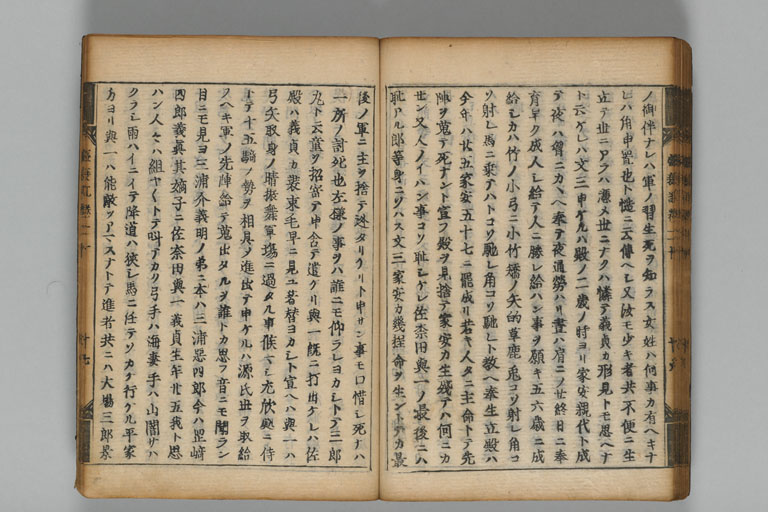 ノ御伴ナレハ軍ノ習生死ヲ知ラス女姓ハ何事カ有ヘキナ
レハ角申置也ト慥ニ云傳ヘシ又彼モ少キ者共不便ニ生
立テ世ニアラハ憑メ世ニナクハ憐テ義貞カ形見トモ思ヘナ
ト云ケレハ文三申ケルハ殿ノ二歳ノ時ヨリ家安親代ト成
テ夜ハ僧ニカヽヘ奉テ夜通勞ハリ晝ハ肩ニノせ終日ニ奉
育早ク成人シ給テ人ニ勝レ給ハン事ヲ願キ五六歳ニ成
給シカハ竹ノ小弓ニ小竹矯ノ矢的草鹿兎コソ射レ角コ
ソ射レ馬ニ乗テハトコソ馳レ角コソ馳レト教ヘ奉生立殿ハ
今年ハ廿五家安五十七ニ罷成リ若キ人タニ主命トテ先
陣ヲ蒐テ死ナント宣フ殿ヲ見捨テ家安カ生残テハ何ニカ
せン又人ノイハン事コソ恥シケレ佐奈田與一ノ最後ニハ
恥アル郎等身ニソハス文三家安カ幾程命ヲ生ントテカ最
後ノ軍ニ主ヲ捨テ迯タリケリト申サン事モ口惜シ死ナハ
一所ノ討死也左様ノ事ヲハ誰ニモ仰ラレヨカシトテ三郎
丸ト云童ヲ招寄テ申含テ遣ケリ與一既ニ打出ケレハ佐
殿ハ義貞カ装束毛早ニ見ユ着替ヨカシト宣ヘハ與一ハ
弓矢取身ノ晴振舞軍塲ニ過タル事候ハシ尤欣處ニ侍
トテ十五騎ノ勢ヲ相具メ進出テ申ケルハ源氏世ヲ取給
ヘキ軍ノ先陣給テ蒐出タルヲ誰トカ思フ音ニモ聞ラン
目ニモ見ヨ三浦介義明ノ弟ニ本ハ三浦悪四郎今ハ罡﨑
四郎義眞其嫡子ニ佐奈田與一義貞生年廿五我ト思
ハン人々ハ組ヤくトテ叫テカク弓手ハ海妻手ハ山闇サハ
クラシ雨ハイニイテ降道ハ狭シ馬ニ任テソカケ行ケル平家
方ヨリ與一ハ能敵ソアマスナトテ進者共ニハ大塲三郎景